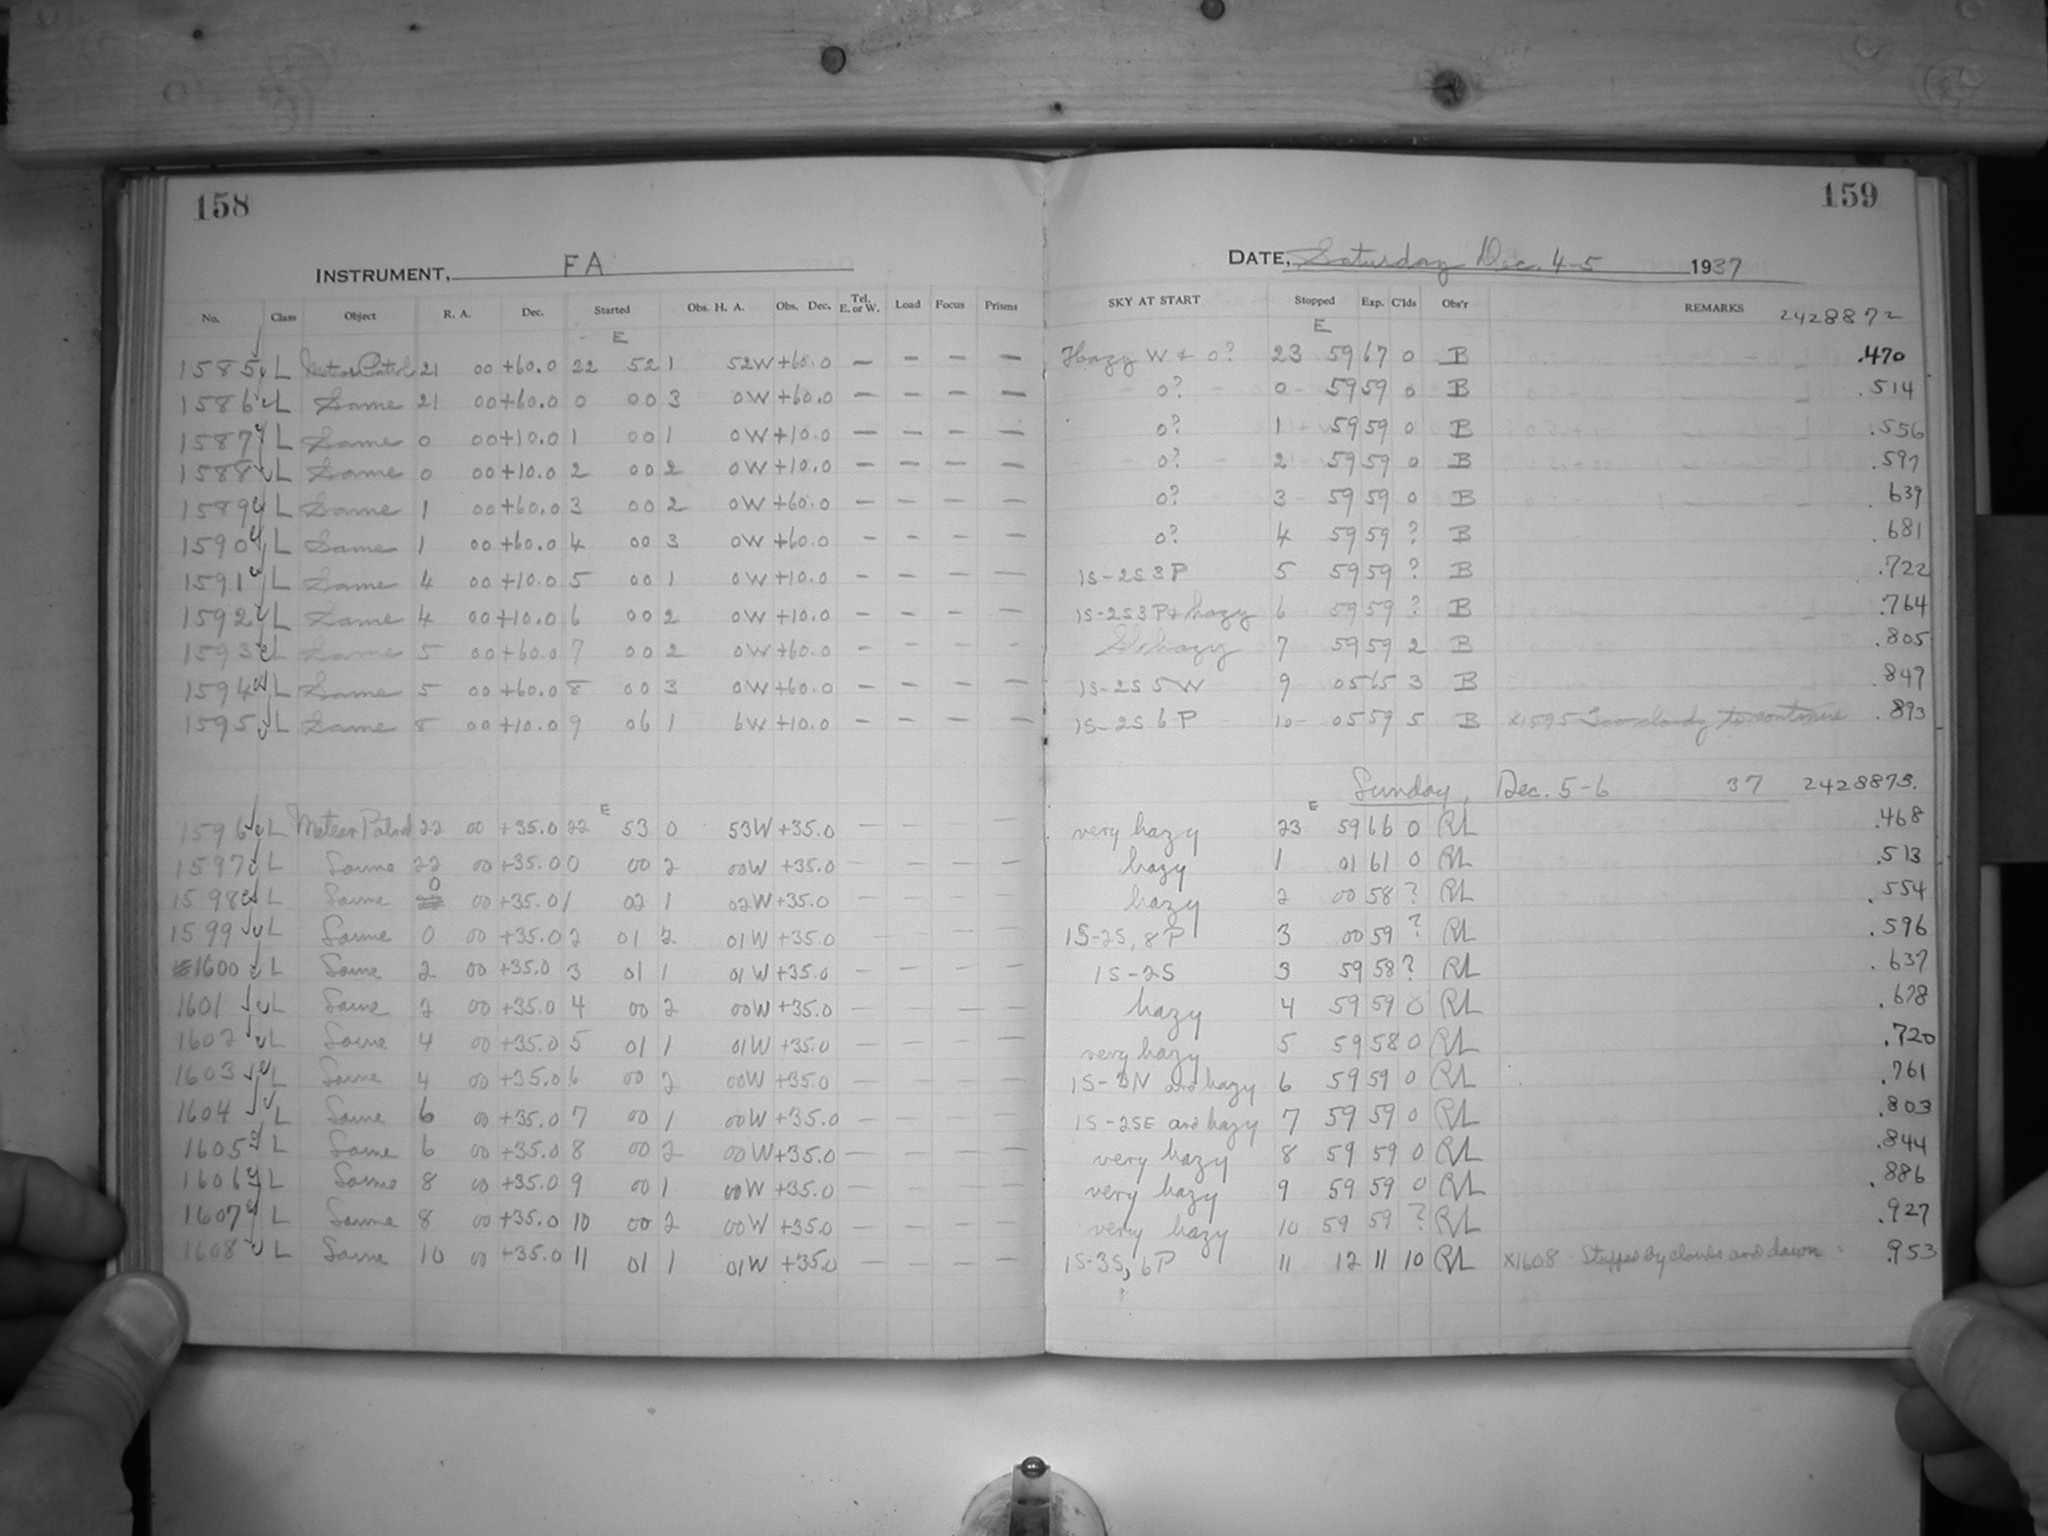 158
159
INSTRUMENT, FA
DATE, Saturday Dec. 4-5 1937
No. Class Object R. A. Dec. Started Obs. H. A. Obs. Dec. Tel. E. or W. Load Focus Prisms SKY AT START Stopped Exp. C'lds Obs'r REMARKS 2428872
E E
1585 L Meteor Patrol 21 00 +60.0 22 52 1 52W +60.0 — — — — Hazy W + 0? 23 59 67 0 B .470
1586 L Same 21 00 +60.0 0 00 3 0W +60.0 — — — — 0? 0 59 59 0 B .514
1587 L Same 0 00 +10.0 1 00 1 0W +10.0 — — — — 0? 1 59 59 0 B .556
1588 L Same 0 00 +10.0 2 00 2 0W +10.0 — — — — 0? 2 59 59 0 B .597
1589 L Same 1 00 +60.0 3 00 2 0W +60.0 — — — — 0? 3 59 59 0 B .639
1590 L Same 1 00 +60.0 4 00 3 0W +60.0 — — — — 0? 4 59 59 ? B .681
1591 L Same 4 00 +10.0 5 00 1 0W +10.0 — — — — 1S-2S 3P 5 59 59 ? B .722
1592 L Same 4 00 +10.0 6 00 2 0W +10.0 — — — — 1S-2S 3P + hazy 6 59 59 ? B .764
1593 L Same 5 00 +60.0 7 00 2 0W +60.0 — — — — Sl. hazy 7 59 59 2 B .805
1594 L Same 5 00 +60.0 8 00 3 0W +60.0 — — — — 1S-2S 5W 9 05 65 3 B .847
1595 L Same 8 00 +10.0 9 06 1 6W +10.0 — — — — 1S-2S 6P 10 05 59 5 B X1595 Too cloudy to continue .893
Sunday, Dec. 5-6 37 2428873.
E E
1596 L Meteor Patrol 22 00 +35.0 22 53 0 53W +35.0 — — — — very hazy 23 59 66 0 RL .468
1597 L Same 22 00 +35.0 0 00 2 00W +35.0 — — — — hazy 1 01 61 0 RL .513
1598 L Same 0 00 +35.0 1 02 1 02W +35.0 — — — — hazy 2 00 58 ? RL .554
1599 L Same 0 00 +35.0 2 01 2 01W +35.0 — — — — 1S-2S, 8P 3 00 59 ? RL .596
1600 L Same 2 00 +35.0 3 01 1 01W +35.0 — — — — 1S-2S 3 59 58 ? RL .637
1601 L Same 2 00 +35.0 4 00 2 00W +35.0 — — — — hazy 4 59 59 0 RL .678
1602 L Same 4 00 +35.0 5 01 1 01W +35.0 — — — — very hazy 5 59 58 0 RL .720
1603 L Same 4 00 +35.0 6 00 2 00W +35.0 — — — — 1S-3N and hazy 6 59 59 0 RL .761
1604 L Same 6 00 +35.0 7 00 1 00W +35.0 — — — — 1S-2SE and hazy 7 59 59 0 RL .803
1605 L Same 6 00 +35.0 8 00 2 00W +35.0 — — — — very hazy 8 59 59 0 RL .844
1606 L Same 8 00 +35.0 9 00 1 00W +35.0 — — — — very hazy 9 59 59 0 RL .886
1607 L Same 8 00 +35.0 10 00 2 00W +35.0 — — — — very hazy 10 59 59 ? RL .927
1608 L Same 10 00 +35.0 11 01 1 01W +35.0 — — — — 1S-3S, 6P 11 12 11 10 RL X1608 - Stopped by clouds and dawn .953